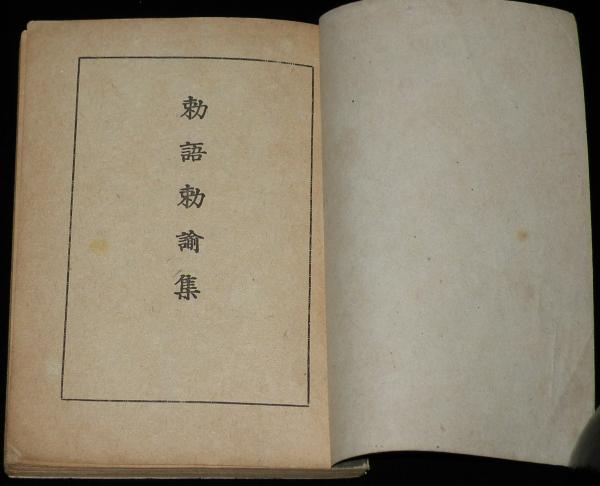 勅語勅諭集